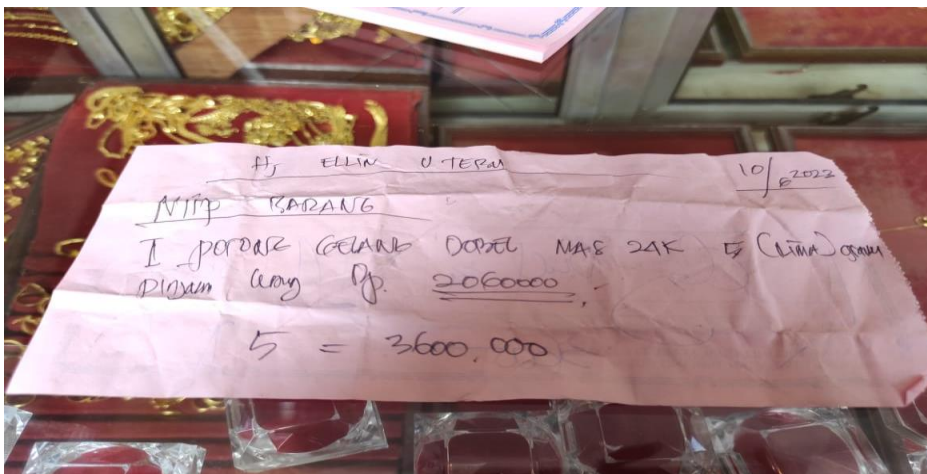 Hj ELLIN U TERM
10/6 2022
NITIP BARANG
1 POTONG GELANG DOBEL MAS 24K 5 (LIMA) gram
PINJAM Uang Rp. 2060000,
5 = 3600.000